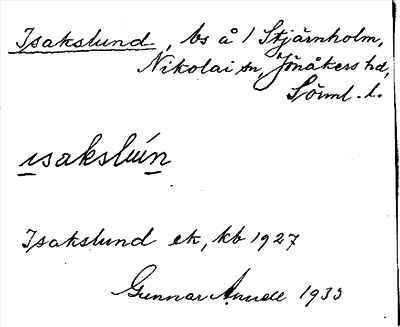 Isakslund, bs å 1 Stjärnholm,
Nikolai sn, Jönåkers hd,
Sörml. l.
ısakslún
Isakslund ek, kb 1927
Gunnar Amell 1933